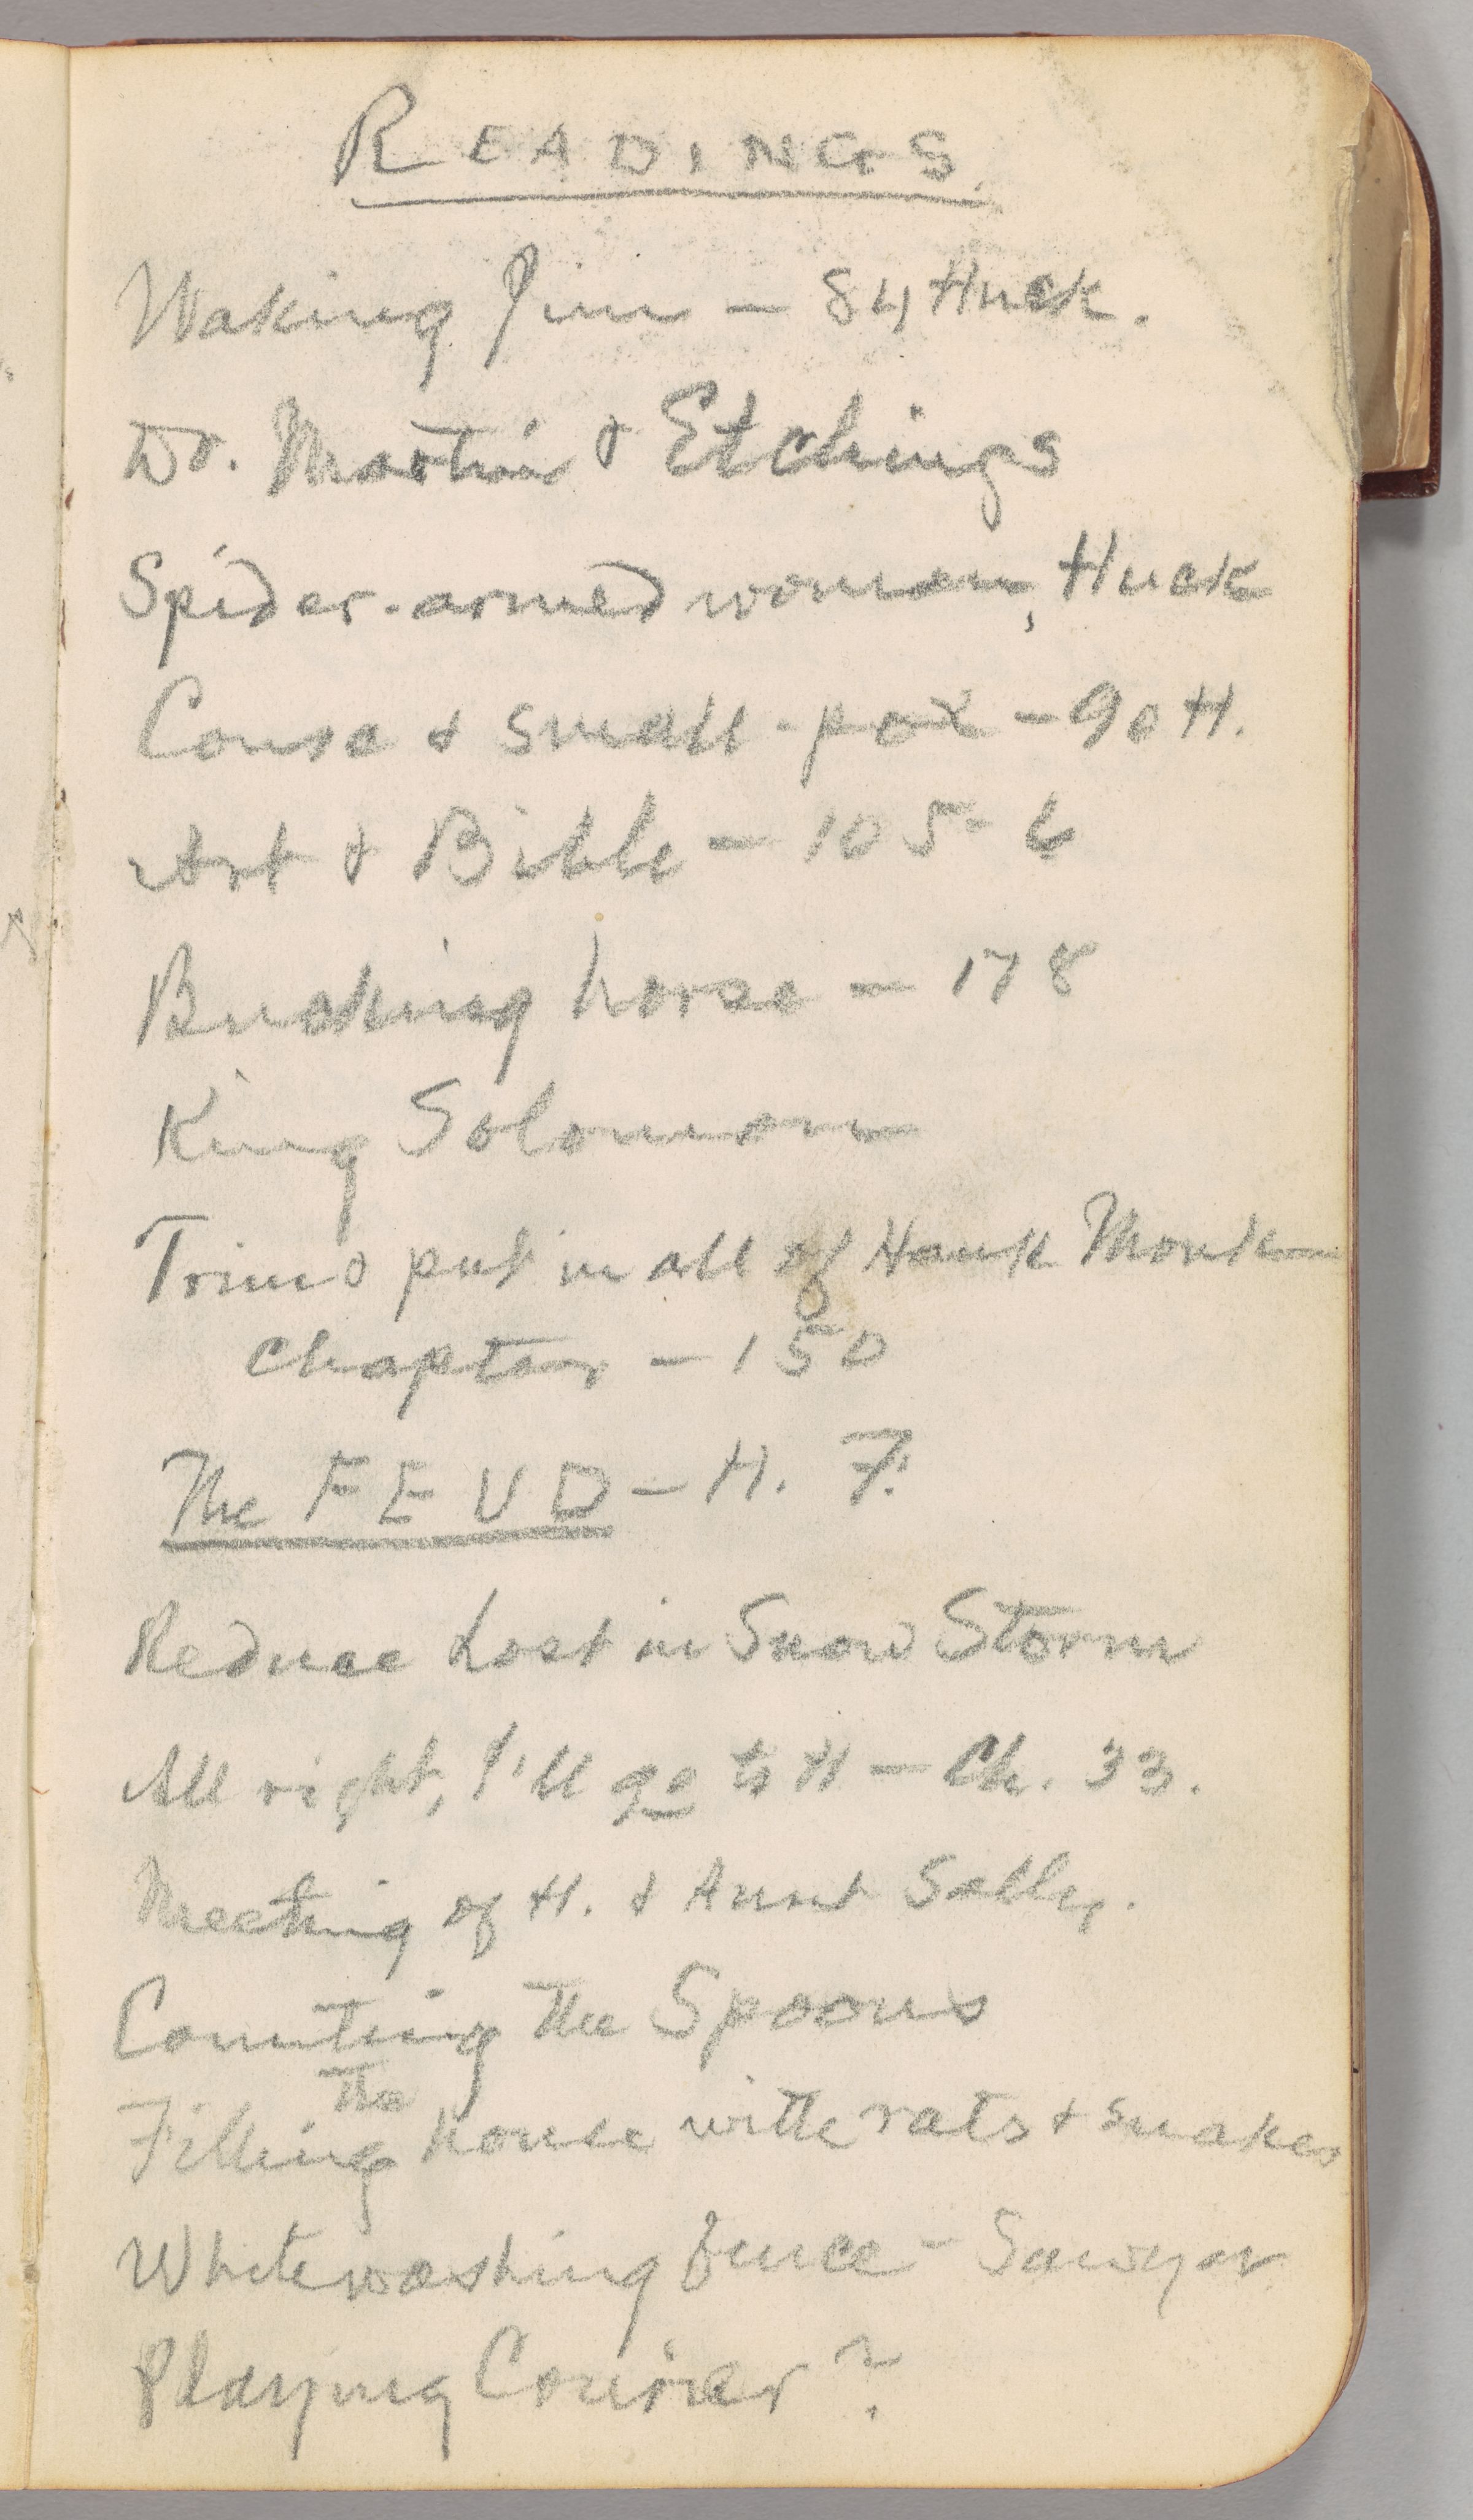 READINGS.
Waking Jim — 84 Huck.
Dr. Martin & Etchings
Spider-armed woman, Huck
Conse & small-pox — 90 H.
Art & Bible — 105-6
Bucking horse — 178
King Solomon
Trim & put in all of Hank Monk
chapter — 150
The FEUD — H. F.
Reduce Lost in Snow Storm
All right, I'll go to H — Ch. 33.
Meeting of H. & Aunt Sally.
Counting the Spoons
Filling the house with rats & snakes
Whitewashing fence — Sawyer
Playing Courier?